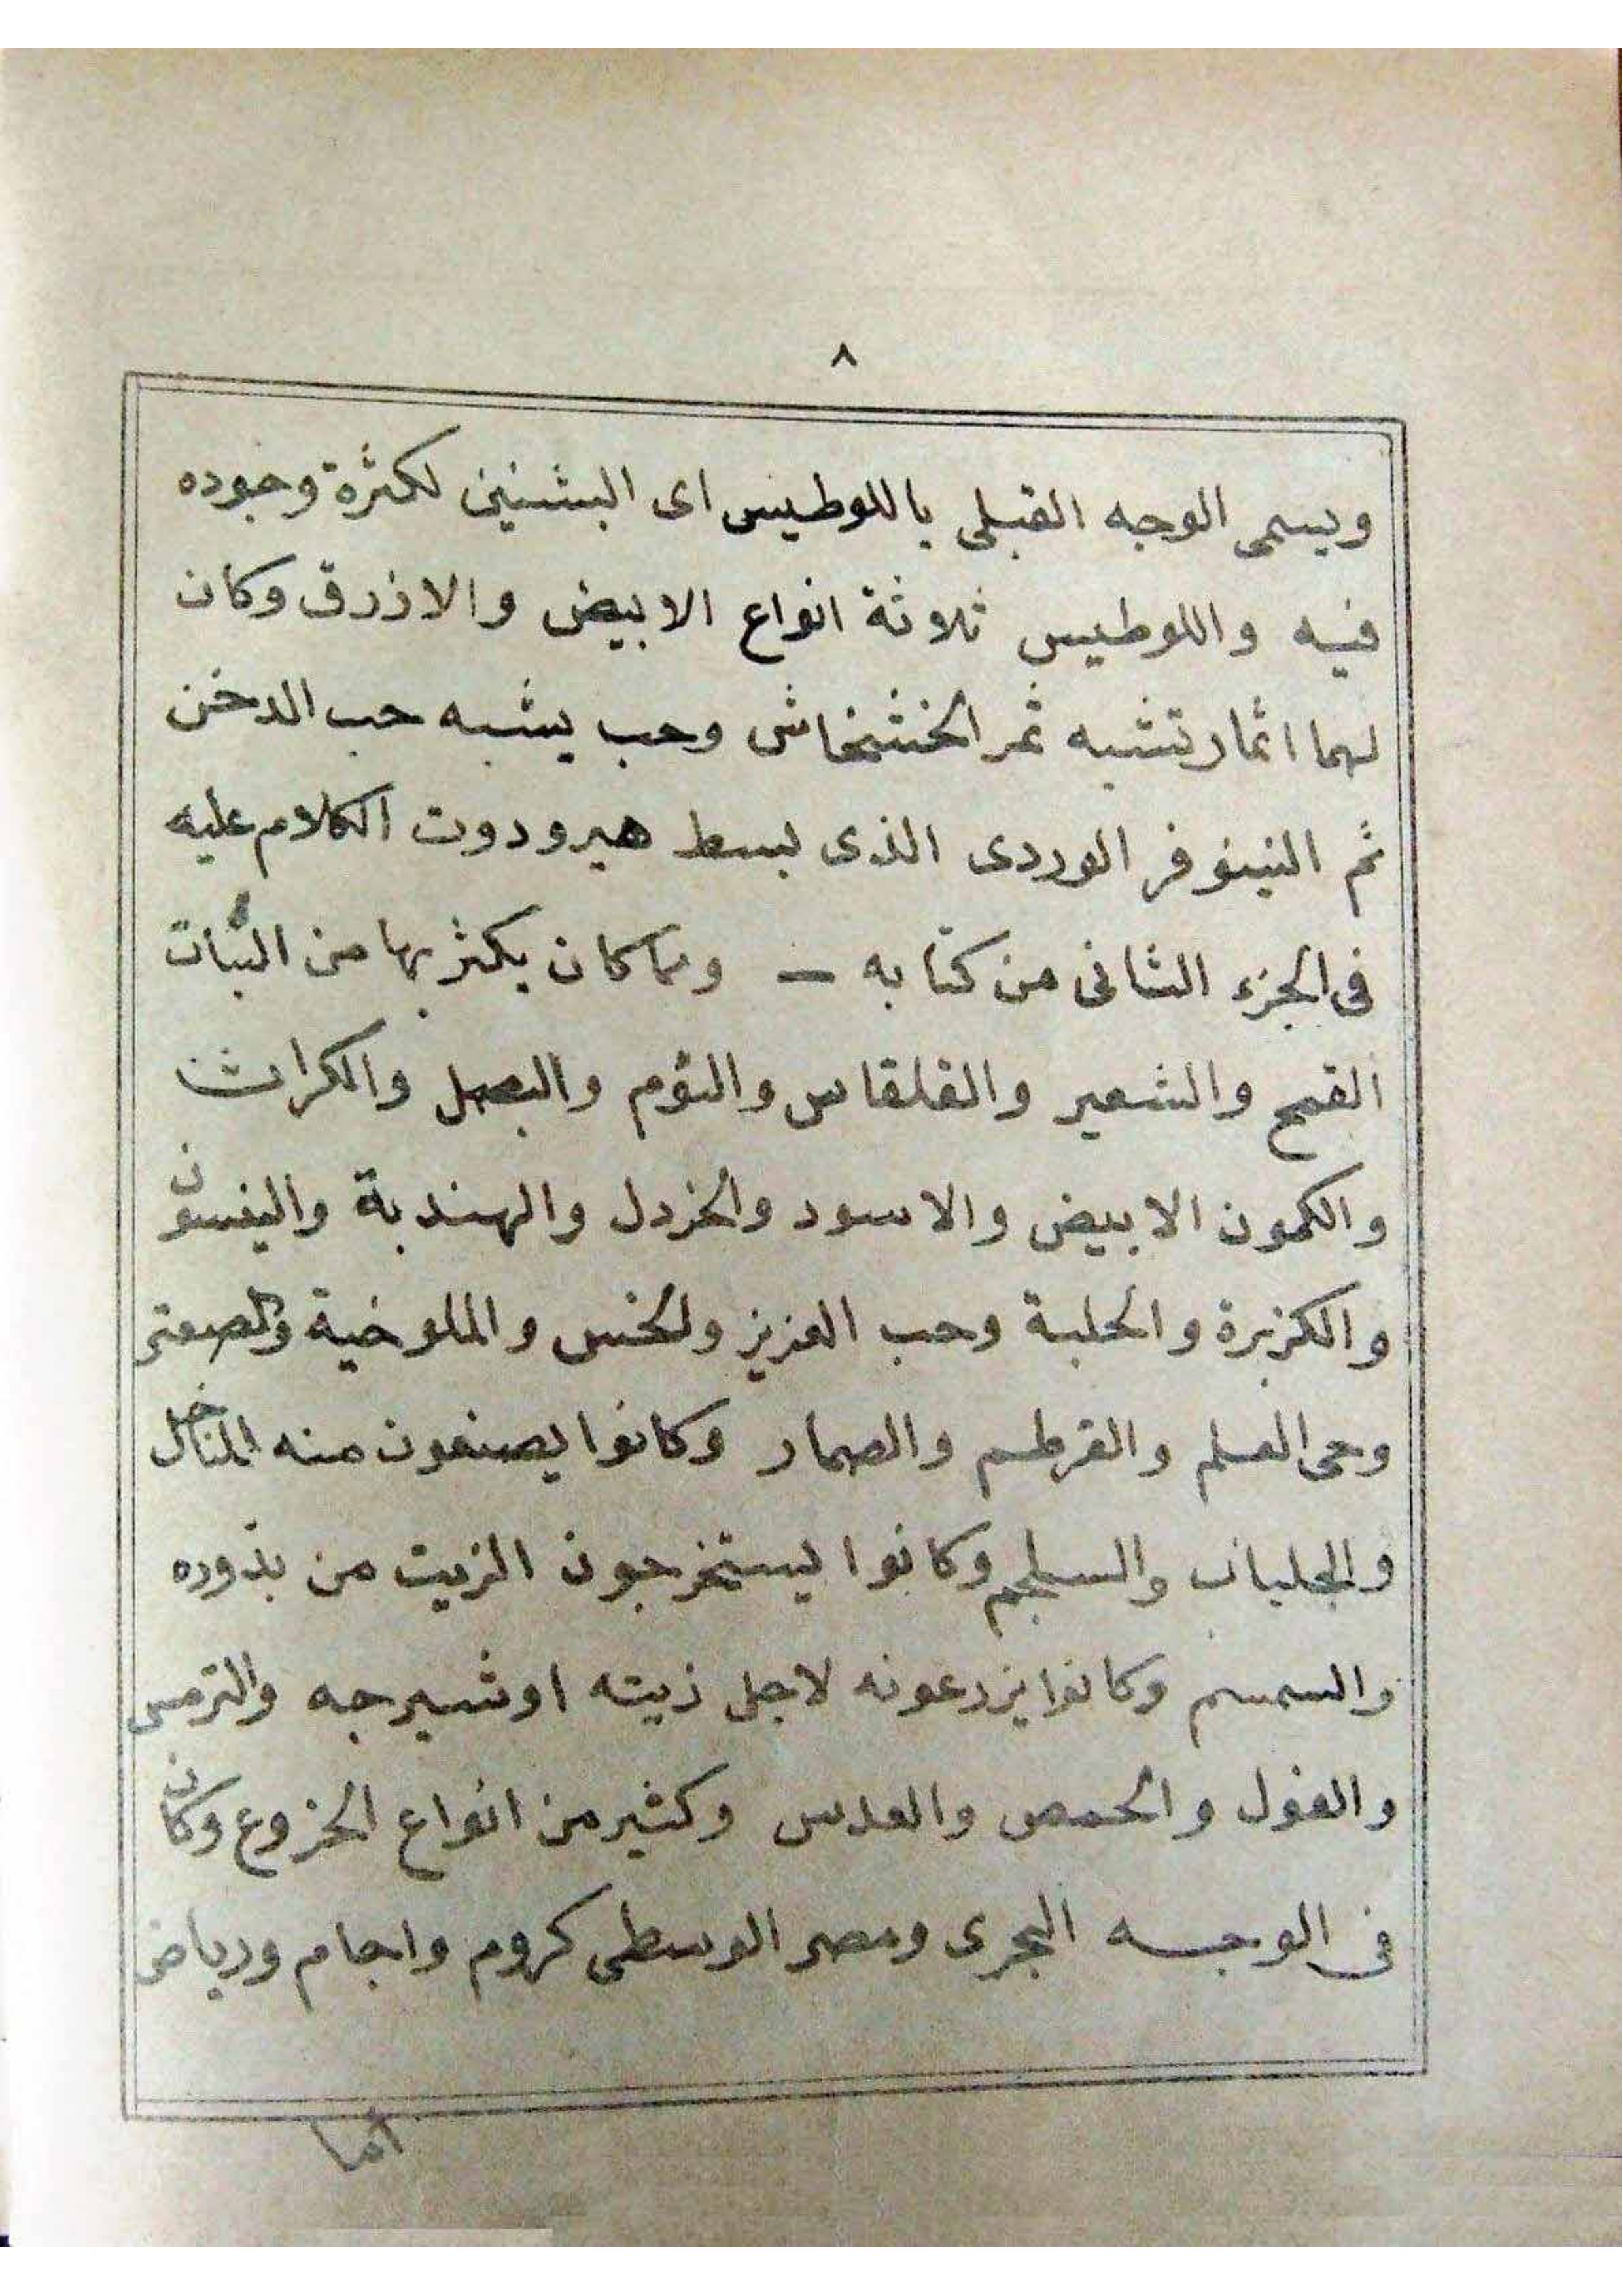 ٨
ويسمى الوجه القبلى باللوطيس اى البشنين لكثرة وجوده
فيه واللوطيس ثلاثة انواع الابيض والازرق وكان
لهما اثمار تشبه ثمر الخشخاش وحب يشبه حب الدخن
ثم النينوفر الوردى الذى بسط هيرودوت الكلام عليه
فى الجزء الثانى من كتابه — ومما كان يكثر بها من النبات
القمح والشعير والقلقاس والثوم والبصل والكراث
والكمون الابيض والاسود والخردل والهندبة والينسون
والكزبرة والحلبة وحب العزيز والخس والملوخية والصعتر
وحى العلم والقرطم والصمار وكانوا يصنعون منه المناخل
والجلبان والسلجم وكانوا يستخرجون الزيت من بذوره
والسمسم وكانوا يزرعونه لاجل زيته اوشيرجه والترمس
والفول والحمص والعدس وكثير من انواع الخروع وكان
فى الوجه البحرى ومصر الوسطى كروم واجام ورياض
اما